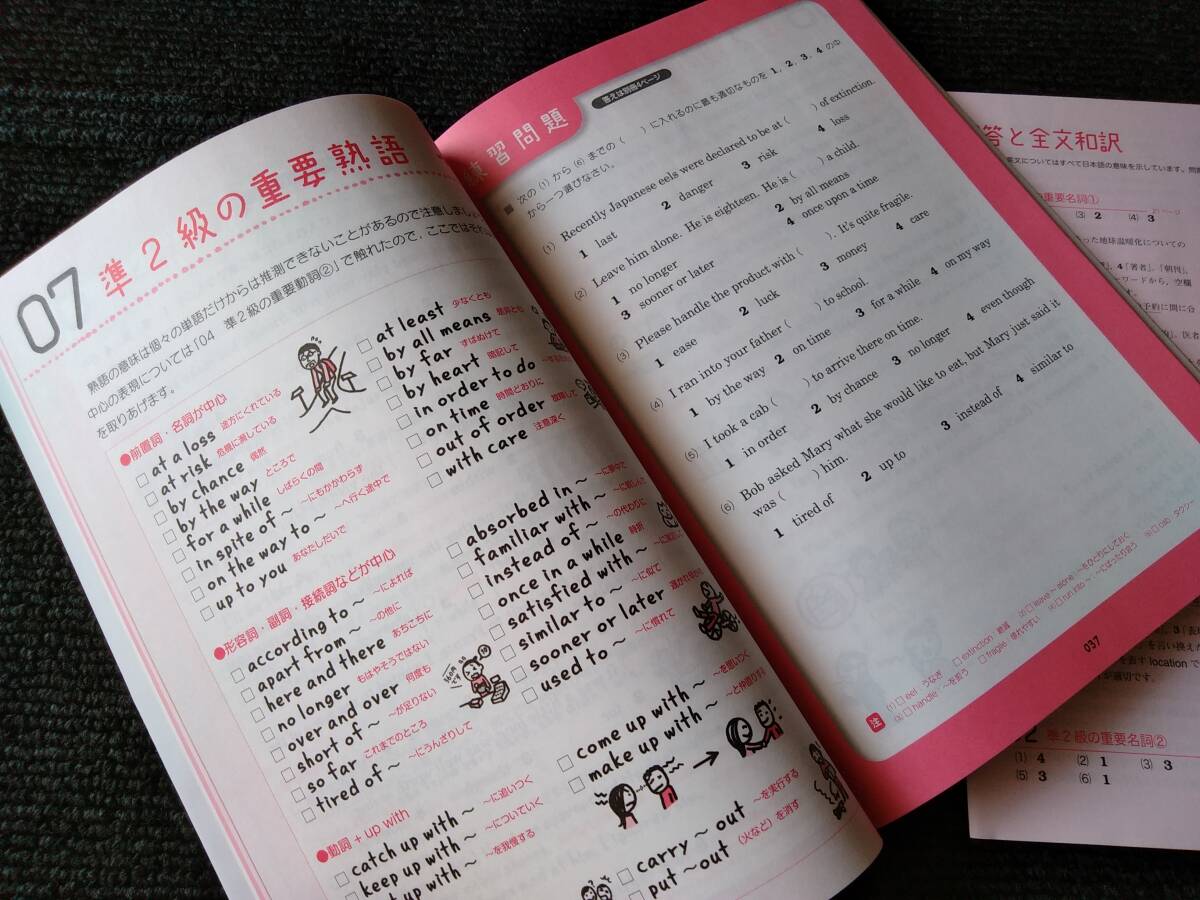 07 準2級の重要熟語
熟語の意味は個々の単語だけからは推測できないことがあるので注意しまし
中心の表現については「04 準2級の重要動詞②」で触れたので、ここではそれ
を取りあげます。
●前置詞・名詞が中心
□ at a loss 途方にくれている
□ at risk 危機に瀕している
□ by chance 偶然
□ by the way ところで
□ for a while しばらくの間
□ in spite of ~ ~にもかかわらず
□ on the way to ~ ~へ行く途中で
□ up to you あなたしだいで
□ at least 少なくとも
□ by all means
□ by far ずばぬけて
□ by heart 暗記して
□ in order to do
□ on time 時間どおりに
□ out of order
□ with care 注意深く
●形容詞・副詞・接続詞などが中心
□ according to ~ ~によれば
□ apart from ~ ~の他に
□ here and there あちこちに
□ no longer もはやそうではない
□ over and over 何度も
□ short of ~ ~が足りない
□ so far これまでのところ
□ tired of ~ ~にうんざりして
□ absorbed in ~ ~に夢中で
□ familiar with ~
□ instead of ~ ~の代わりに
□ once in a while 時折
□ satisfied with ~
□ similar to ~ ~に似て
□ sooner or later
□ used to ~ ~に慣れて
●動詞 + up with
□ catch up with ~ ~に追いつく
□ keep up with ~ ~についていく
up with ~ ~を我慢する
□ come up with ~ ~を思いつく
□ make up with ~ ~と仲直りす
□ carry ~ out ~を実行する
□ put ~ out (火など)を消す
練習問題
答えは別冊4ページ
■ 次の(1)から(6)までの( )に入れるのに最も適切なものを1, 2, 3, 4の中
から一つ選びなさい。
(1) Recently Japanese eels were declared to be at ( ) of extinction.
1 last 2 danger 3 risk 4 loss
(2) Leave him alone. He is eighteen. He is ( ) a child.
1 no longer 2 by all means
3 sooner or later 4 once upon a time
(3) Please handle the product with ( ). It's quite fragile.
1 ease 2 luck 3 money 4 care
(4) I ran into your father ( ) to school.
1 by the way 2 on time 3 for a while 4 on my way
(5) I took a cab ( ) to arrive there on time.
1 in order 2 by chance 3 no longer 4 even though
(6) Bob asked Mary what she would like to eat, but Mary just said it
was ( ) him.
1 tired of 2 up to 3 instead of 4 similar to
注 (1) □ eel うなぎ □ extinction 絶滅 (2) □ leave ~ alone ~をひとりにしておく
(3) □ handle ~を扱う □ fragile 壊れやすい (4) □ run into ~ ~にばったり会う (5) □ cab タクシ
037
答と全文和訳
英文についてはすべて日本語の意味を示しています。
重要名詞①
(3) 2 (4) 3
った地球温暖化についての
4「著者」、「朝刊」
ーワードから、空欄
を言い換えた
を表す location で
が適切です。
2 準2級の重要名詞②
(1) 4 (2) 1 (3) 3
(5) 3 (6) 1